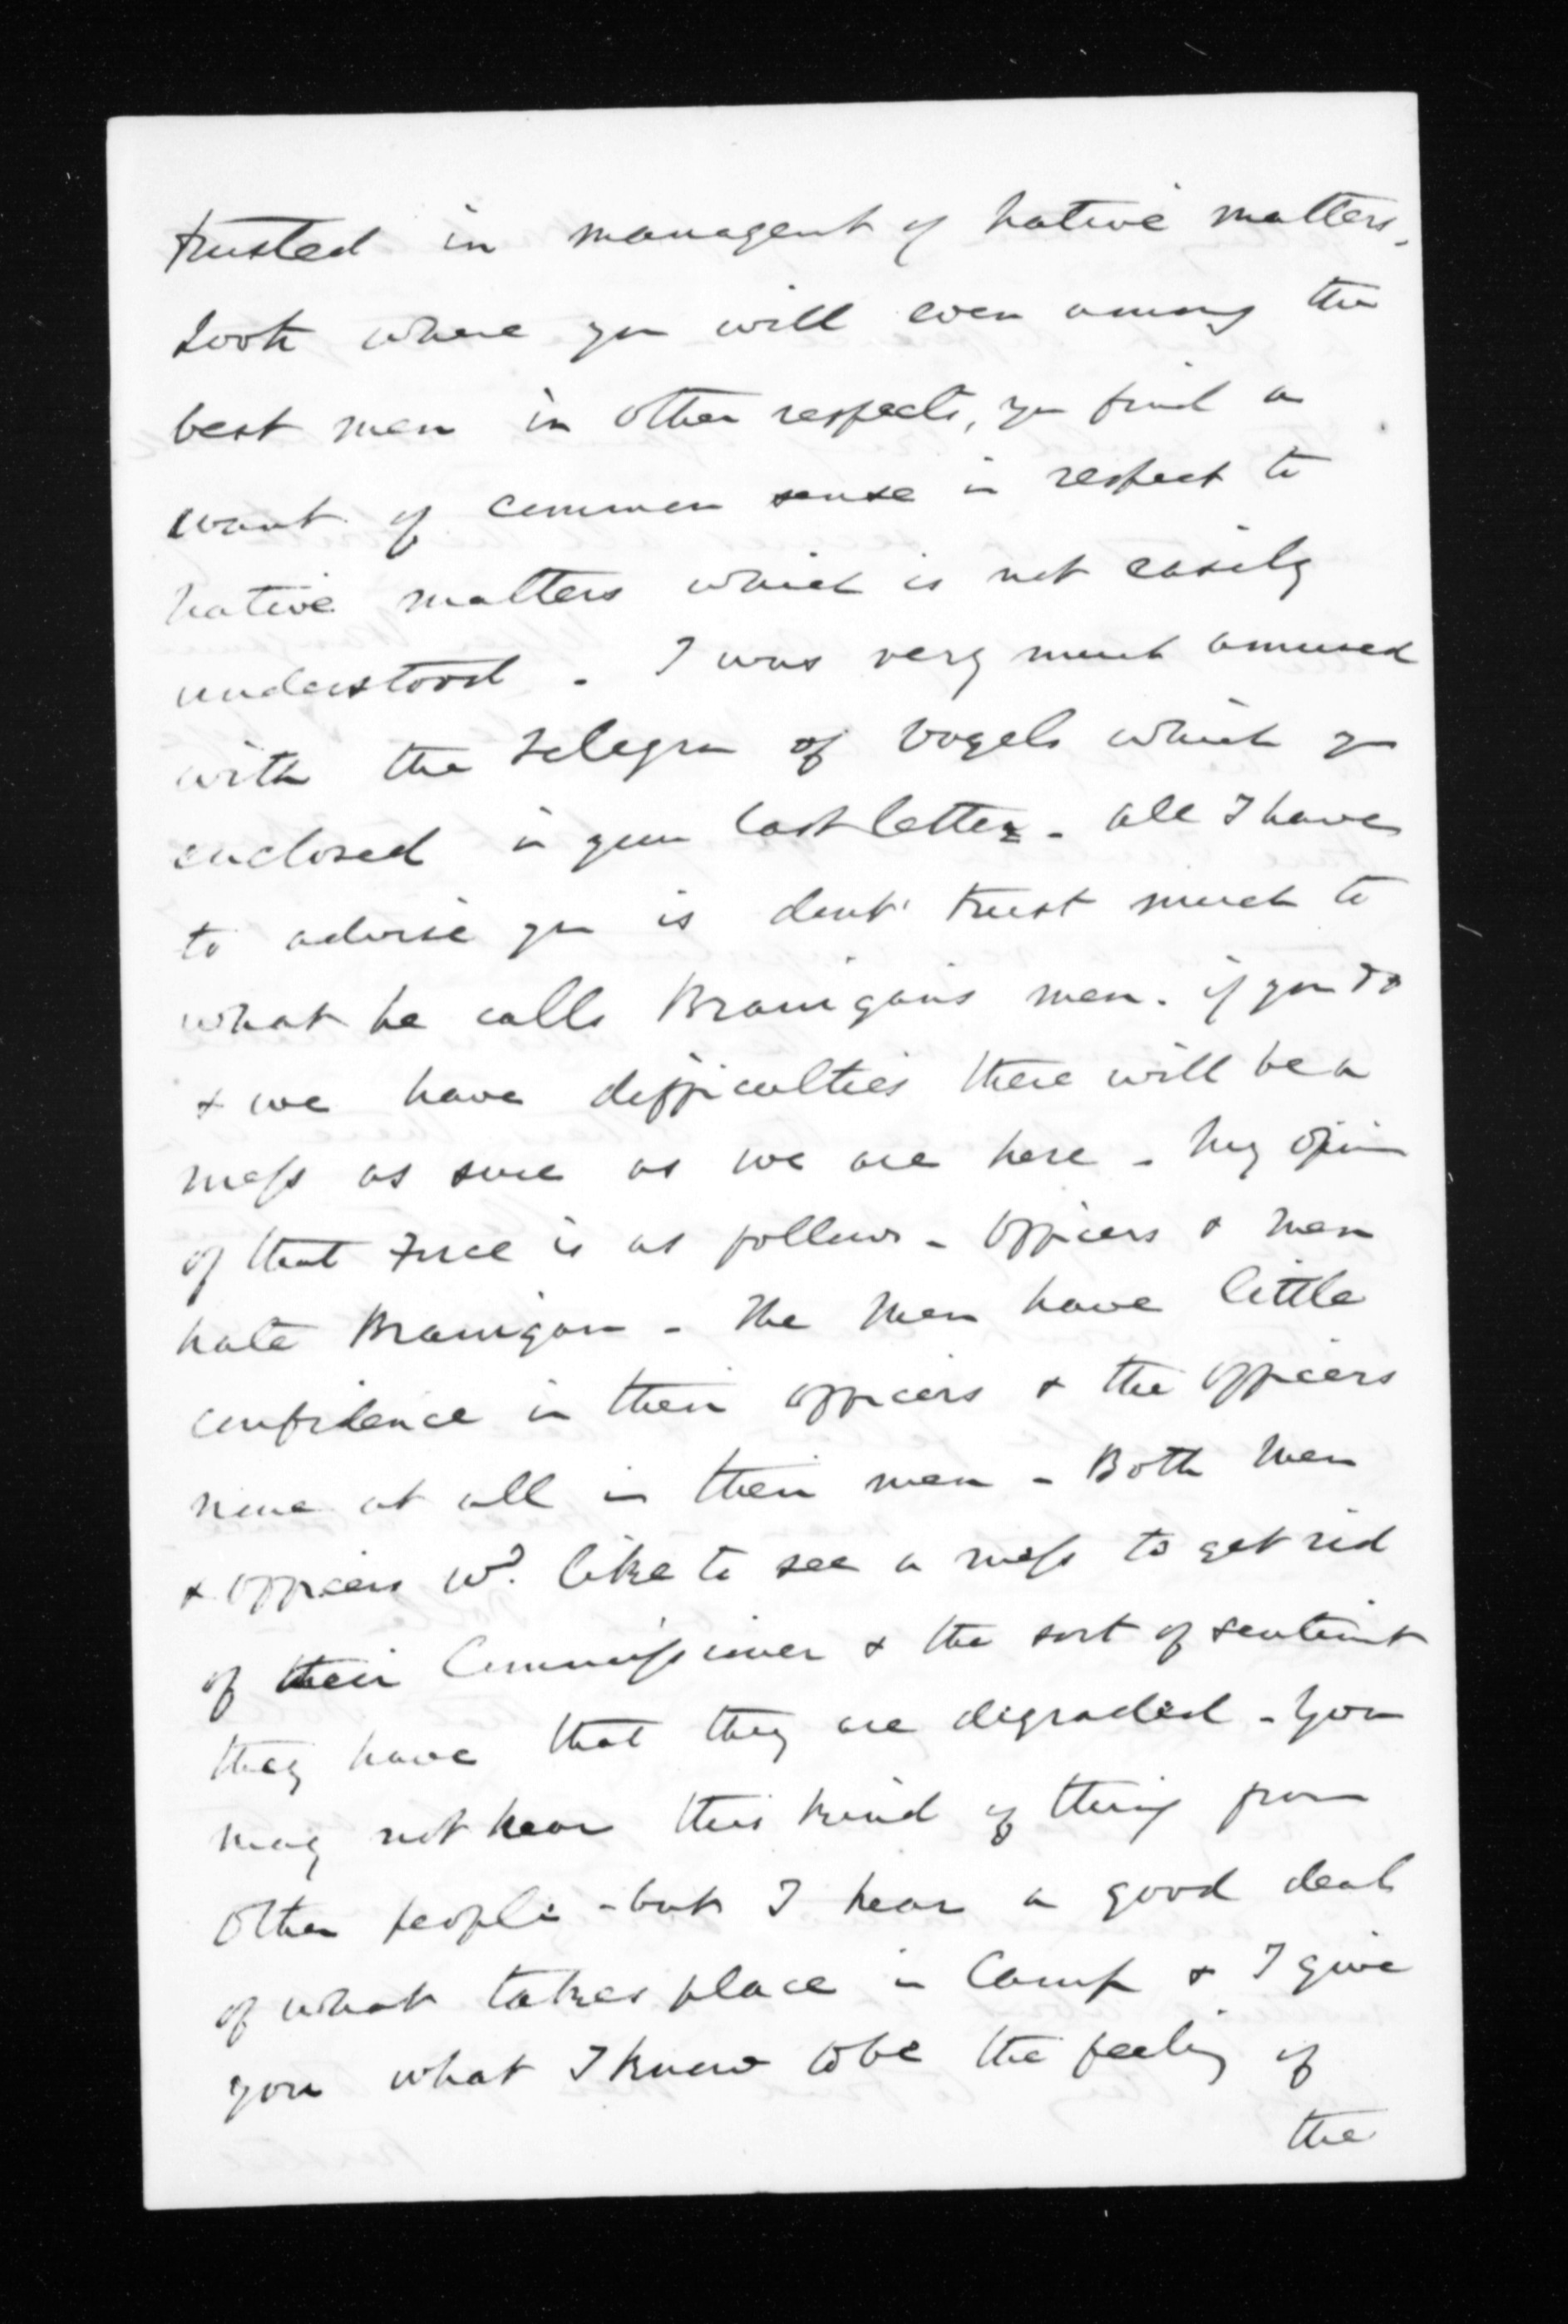 trusted in managent of native matters.
Look where you will even among the
best men in other respects, you find a
want of common sense in respect to
native matters which is not easily
understood - I was very much amused
with the telegram of Vogels which you
enclosed in your last letter - All I have
to advise you is dont' trust much to
what he calls Branigans men. if you do
& we have difficulties there will be a
mess as sure as we are here - My opinion
of that Force is as follows - Officers & men
hate Branigan - The Men have little
confidence in their officers & the officers
none at all in their men - Both Men
& officers wd. like to see a mess to get rid
of their Commissioner & the sort of sentiment
they have that they are degraded - You
may not hear this kind of thing from
other people - but I hear a good deal
of what takes place in Camp & I give
you what I know to be the feeling of
the